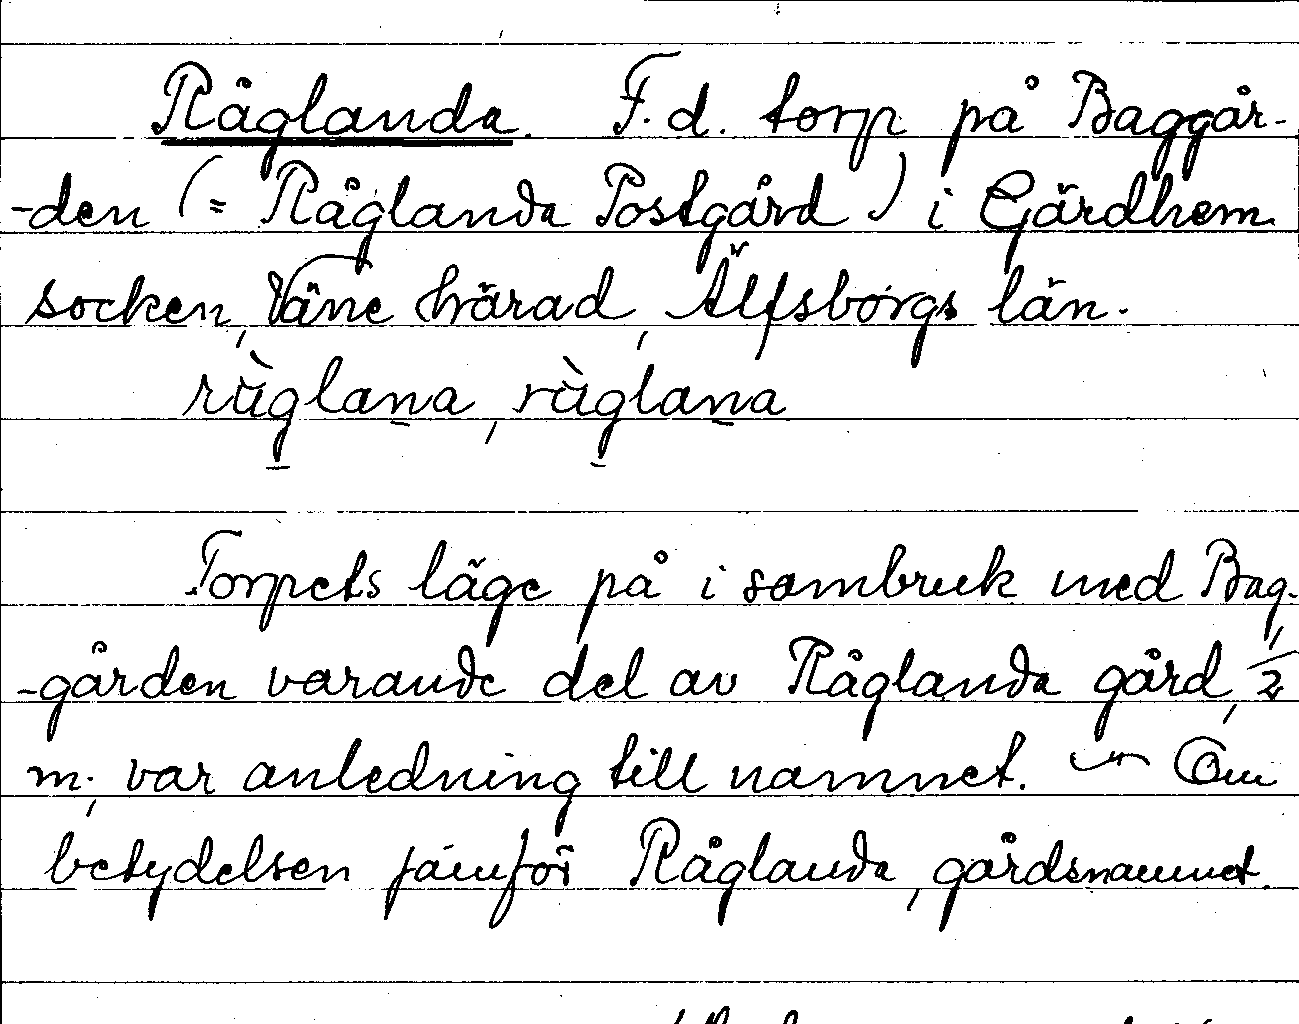 Råglanda. F.d. torp på Baggår-
-den (= Råglanda Postgård) i Gärdhem
socken, Väne härad, Älfsborgs län.
rùglana, rùglana
Torpets läge på i sambruk med Bag-
-gården varande del av Råglanda gård, 1/2
m., var anledning till namnet. — Om
betydelsen jämför Råglanda, gårdsnamnet.